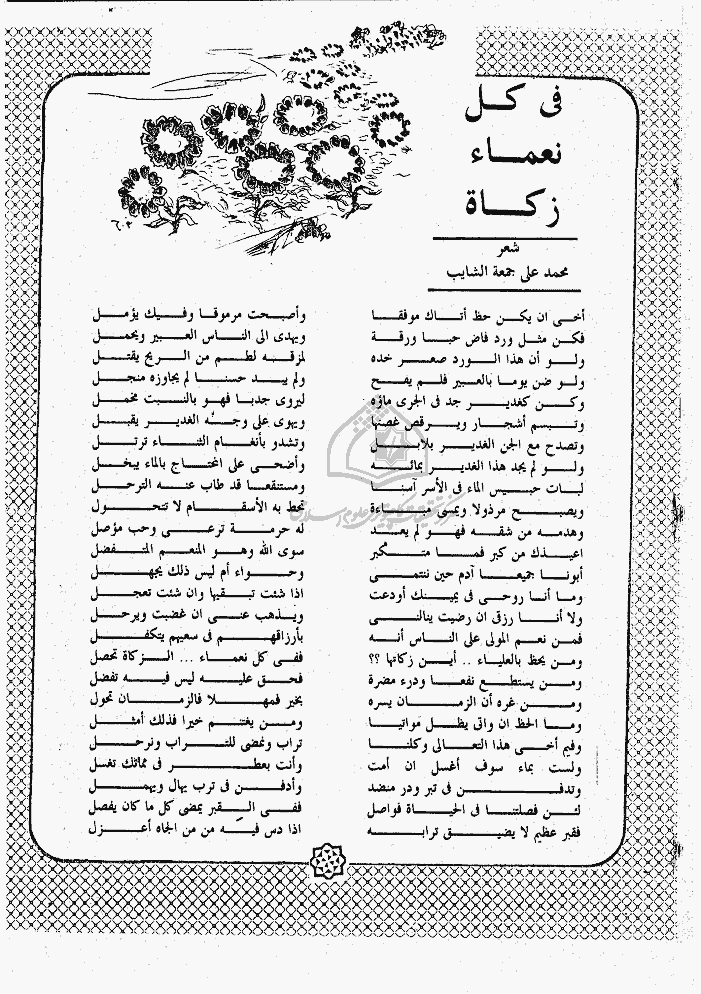 فى كـــل
نعمـــاء
زكـــاة
شعر
محمد على جمعة الشايب
أخـى ان يكـن حظ أتـاك موفقـا
وأصبـحت مرموقـا وفـيك يؤمـل
فكـن مثـل ورد فاض حبـا ورقـة
ويهدى الى النـاس العبـير ويحمـل
ولـو أن هذا الـورد صعـر خده
لمزقـه لطـم من الـريح يقتـل
ولـو ضن يومـا بالعبير فلـم يفـح
ولم يبـد حسنـا لم يجاوزه منجـل
وكـن كغديـر جد فى الجرى ماؤه
ليروى جدبـا فهـو بالنـبت مخمـل
وتـبسم أشجـار ويـرقص غصنها
ويهوى على وجـه الغديـر يقبـل
وتصدح مع الجن الغديـر بلابـل
وتشدو بأنغـام الثنـاء ترتـل
ولـو لم يجد هذا الغديـر بمائـه
وأضحـى على المحتـاج بالماء يبخـل
لبـات حبـيس الماء فى الأسر آسنـا
ومستنقعـا قد طاب عنـه الترحـل
ويصبـح مرذولا ويمسى مبـاءة
تحط به الأسقـام لا تتحـول
وهدمـه من شقـه فهـو لم يعـد
له حرمـة ترعـى وحب مؤصل
اعيـذك من كبر فمـا متـكبر
سوى الله وهـو المنعـم المتـفضل
أبونـا جميعـا آدم حين ننتمـى
وحـواء أم ليس ذلك يجهـل
ومـا أنـا روحـى فى يمينـك أودعت
اذا شئت تبـقيها وان شئت تعجـل
ولا أنـا رزقى ان رضيت ينالنـى
ويـذهب عنـى ان غضبت ويرحـل
فمـن نعـم المولى على النـاس أنـه
بأرزاقهـم فى سعيهم يتكفـل
ومـن يحظ بالعليـاء .. أيـن زكاتها ؟؟
ففى كل نعمـاء ... الـزكاة تحصل
ومـن يستطـع نفعـا ودرء مضرة
فحـق عليـه ليس فيـه تفضل
ومـن غره أن الزمـان يسره
بخير فمهـلا فالزمـان تحول
ومـا الحظ ان واتى يظـل مواتيـا
ومـن يغتنـم خيرا فذلك أمثـل
وفيم أخـى هذا التعـالى وكلنـا
تراب ونمضى للتـراب ونرحـل
ولست بماء سوف أغسل ان أمت
وأنت بعطـر فى مماتك تغسل
وتدفـن فى تبر ودر منضد
وأدفـن فى ترب يهال ويهمـل
لئـن فصلتنـا فى الحيـاة فواصل
ففـى الـقبر يمضى كل ما كان يفصل
فقبر عظيم لا يضيـق ترابـه
اذا دس فيـه من من الجاه أعـزل